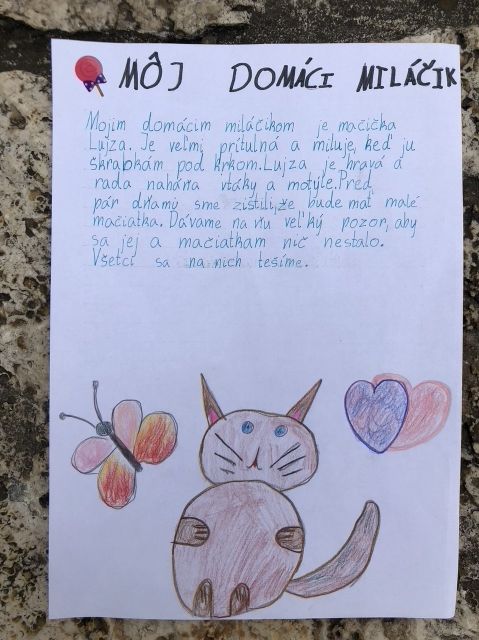 MÔJ DOMÁCI MILÁČIK
Mojim domácim miláčikom je mačička
Lujza. Je veľmi prítulná a miluje, keď ju
škrabkám pod krkom. Lujza je hravá a
rada naháňa vtáky a motýle. Pred
pár dňami sme zistili, že bude mať malé
mačiatka. Dávame na ňu veľký pozor, aby
sa jej a mačiatkam nič nestalo.
Všetci sa na nich tešíme.